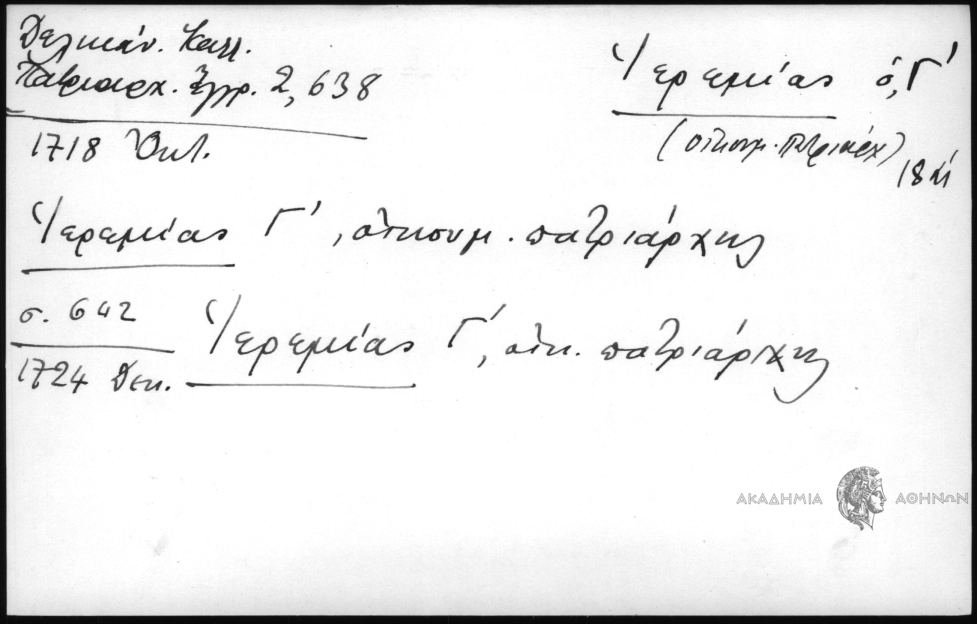 Δελικάν. Καλλ.
Πατριαρχ. Ἔγγρ. 2, 638
1718 Ὀκτ.
Ἱερεμίας ὁ, Γ'
(οἰκουμ. Πατριάρχ)
18 αἰ
Ἱερεμίας Γ', οἰκουμ. πατριάρχης
σ. 642
1724 Δεκ.
Ἱερεμίας Γ', οἰκ. πατριάρχης
ΑΚΑΔΗΜΙΑ ΑΘΗΝΩΝ